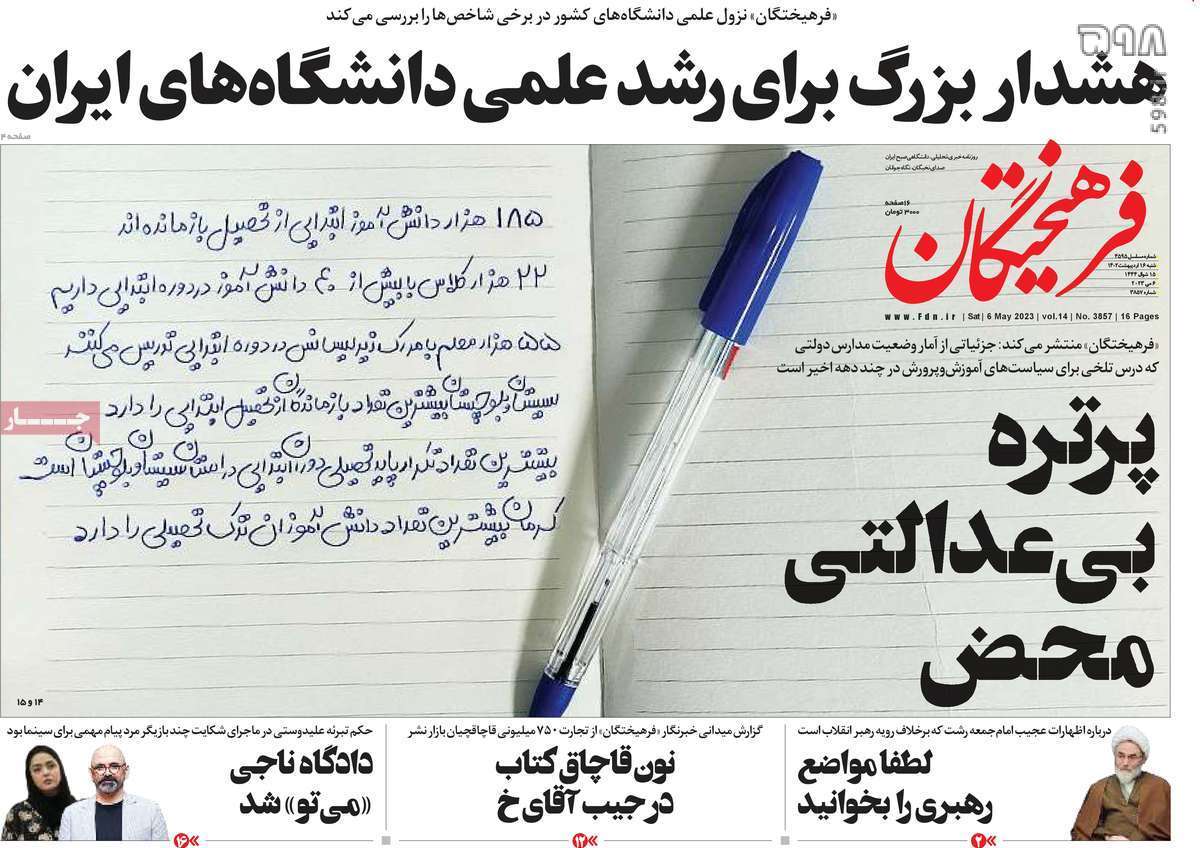 «فرهیختگان» نزول علمی دانشگاه‌های کشور در برخی شاخص‌ها را بررسی می‌کند
۵۹۸
598.ir
هشدار بزرگ برای رشد علمی دانشگاه‌های ایران
صفحه ۴
روزنامه خبری تحلیلی، دانشگاهی صبح ایران
صدای نخبگان، نگاه جوانان
فرهیختگان
۱۶ صفحه
۳۰۰۰ تومان
شماره مسلسل ۴۵۹۵
شنبه ۱۶ اردیبهشت ۱۴۰۲
۱۵ شوال ۱۴۴۴
۶ می ۲۰۲۳
شماره ۳۸۵۷
www.Fdn.ir | Sat | 6 May 2023 | vol.14 | No. 3857 | 16 Pages
«فرهیختگان» منتشر می‌کند: جزئیاتی از آمار وضعیت مدارس دولتی
که درس تلخی برای سیاست‌های آموزش‌وپرورش در چند دهه اخیر است
پرتره
بی‌عدالتی
محض
۱۸۵ هزار دانش آموز ابتدایی از تحصیل بازمانده‌اند
۲۲ هزار کلاس با بیش از ۴۰ دانش آموز در دوره ابتدایی داریم
۵۵ هزار معلم با مدرک زیر لیسانس در دوره ابتدایی تدریس می‌کنند
سیستان و بلوچستان بیشترین تعداد بازماندگان از تحصیل ابتدایی را دارد
بیشترین تعداد تکرار پایه تحصیلی دوران ابتدایی در استان سیستان و بلوچستان است
کرمان بیشترین تعداد دانش آموزان ترک تحصیلی را دارد
جــار
۱۴ و ۱۵
درباره اظهارات عجیب امام‌جمعه رشت که برخلاف رویه رهبر انقلاب است
لطفا مواضع
رهبری را بخوانید
۲
گزارش میدانی خبرنگار «فرهیختگان» از تجارت ۷۵۰ میلیونی قاچاقچیان بازار نشر
نون قاچاق کتاب
در جیب آقای خ
۱۲
حکم تبرئه علیدوستی در ماجرای شکایت چند بازیگر مرد پیام مهمی برای سینما بود
دادگاه ناجی
«می‌تو» شد
۱۶